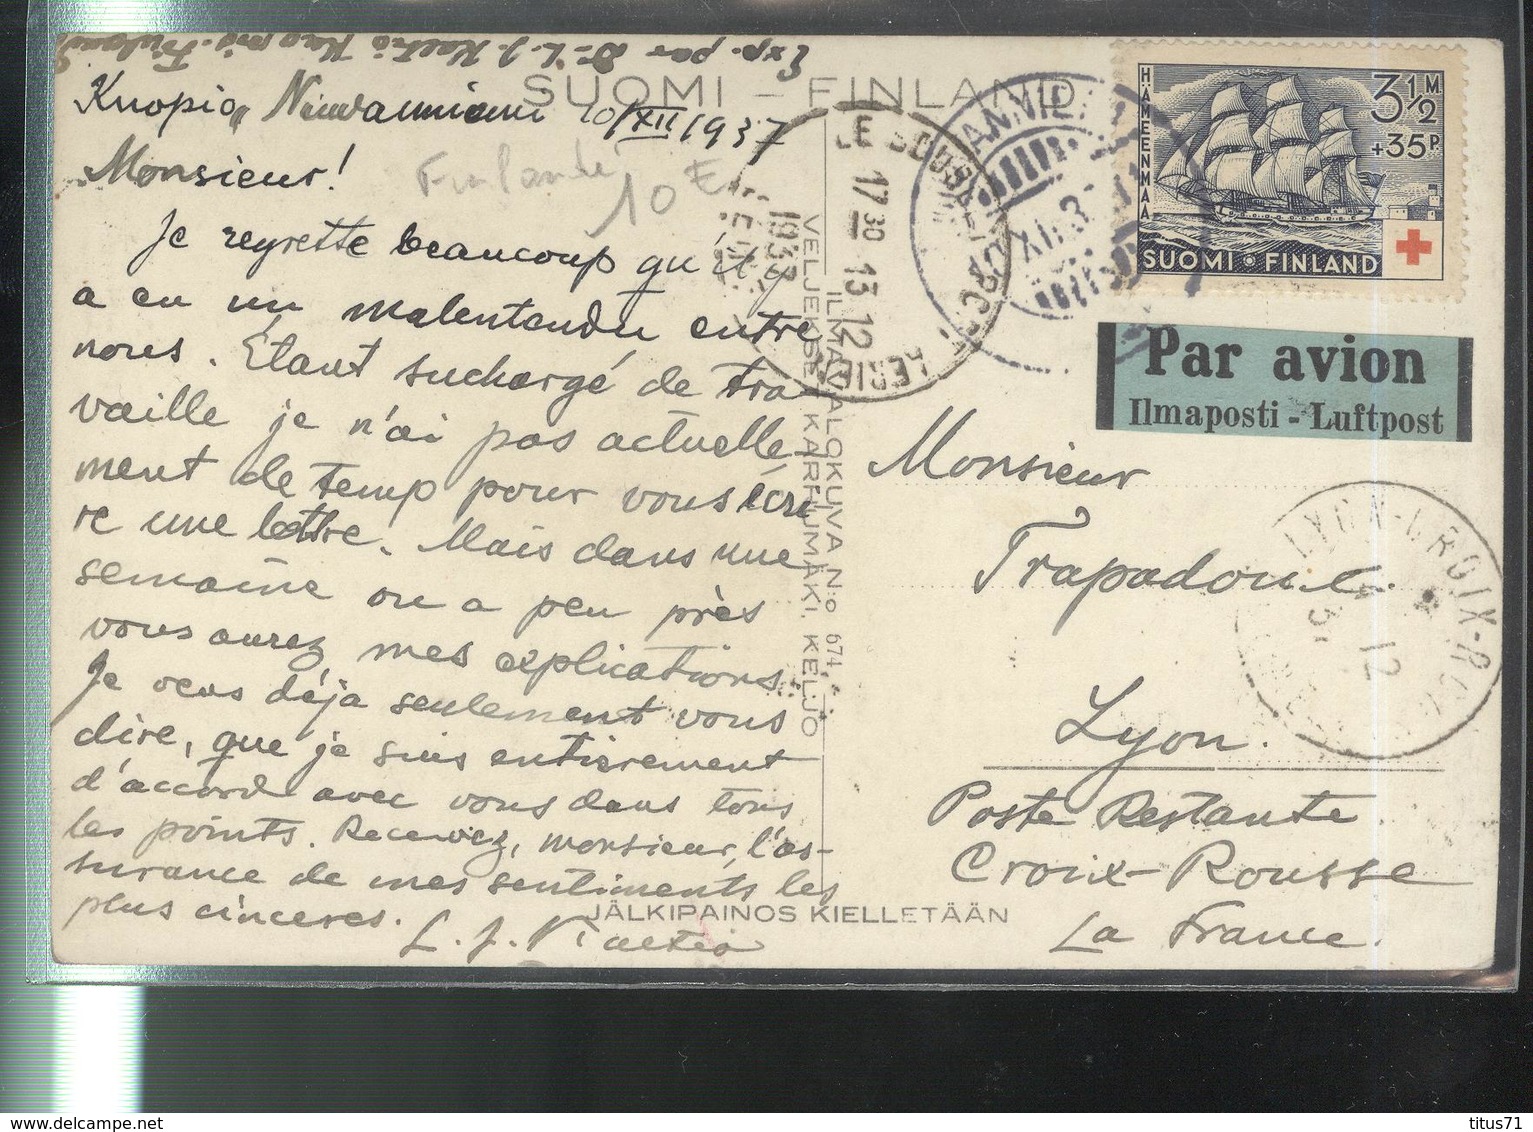 Exp. par Dr. L. J.
SUOMI – FINLAND
Kuopio, Niuvanniemi 10/XII 1937
Monsieur!
Finlande
10 E
Je regrette beaucoup qu'il y
a eu un malentendu entre
nous. Etant suchargé de tra-
vaille je n'ai pas actuelle-
ment de temp pour vous écri
re une lettre. Mais dans une
semaine ou a peu près
vous aurez mes explications.
Je veus déja seulement vous
dire, que je suis entierement
d'accord avec vous dans tous
les points. Recevez, monsieur, l'as-
surance de mes sentiments les
plus cinceres.
L. J.
JÄLKIPAINOS KIELLETÄÄN
ILMAVALOKUVA N:o 674
VELJEKSET KARHUMÄKI, KELJO
LE BOURGET-PORT
17 30
13 12
1937
HÄMEENMAA
3½ M.
+35 P.
SUOMI • FINLAND
Par avion
Ilmaposti - Luftpost
LYON-CROIX-ROUSSE
12
Monsieur
Lyon.
Poste Restante
Croix-Rousse
La France.
titus71